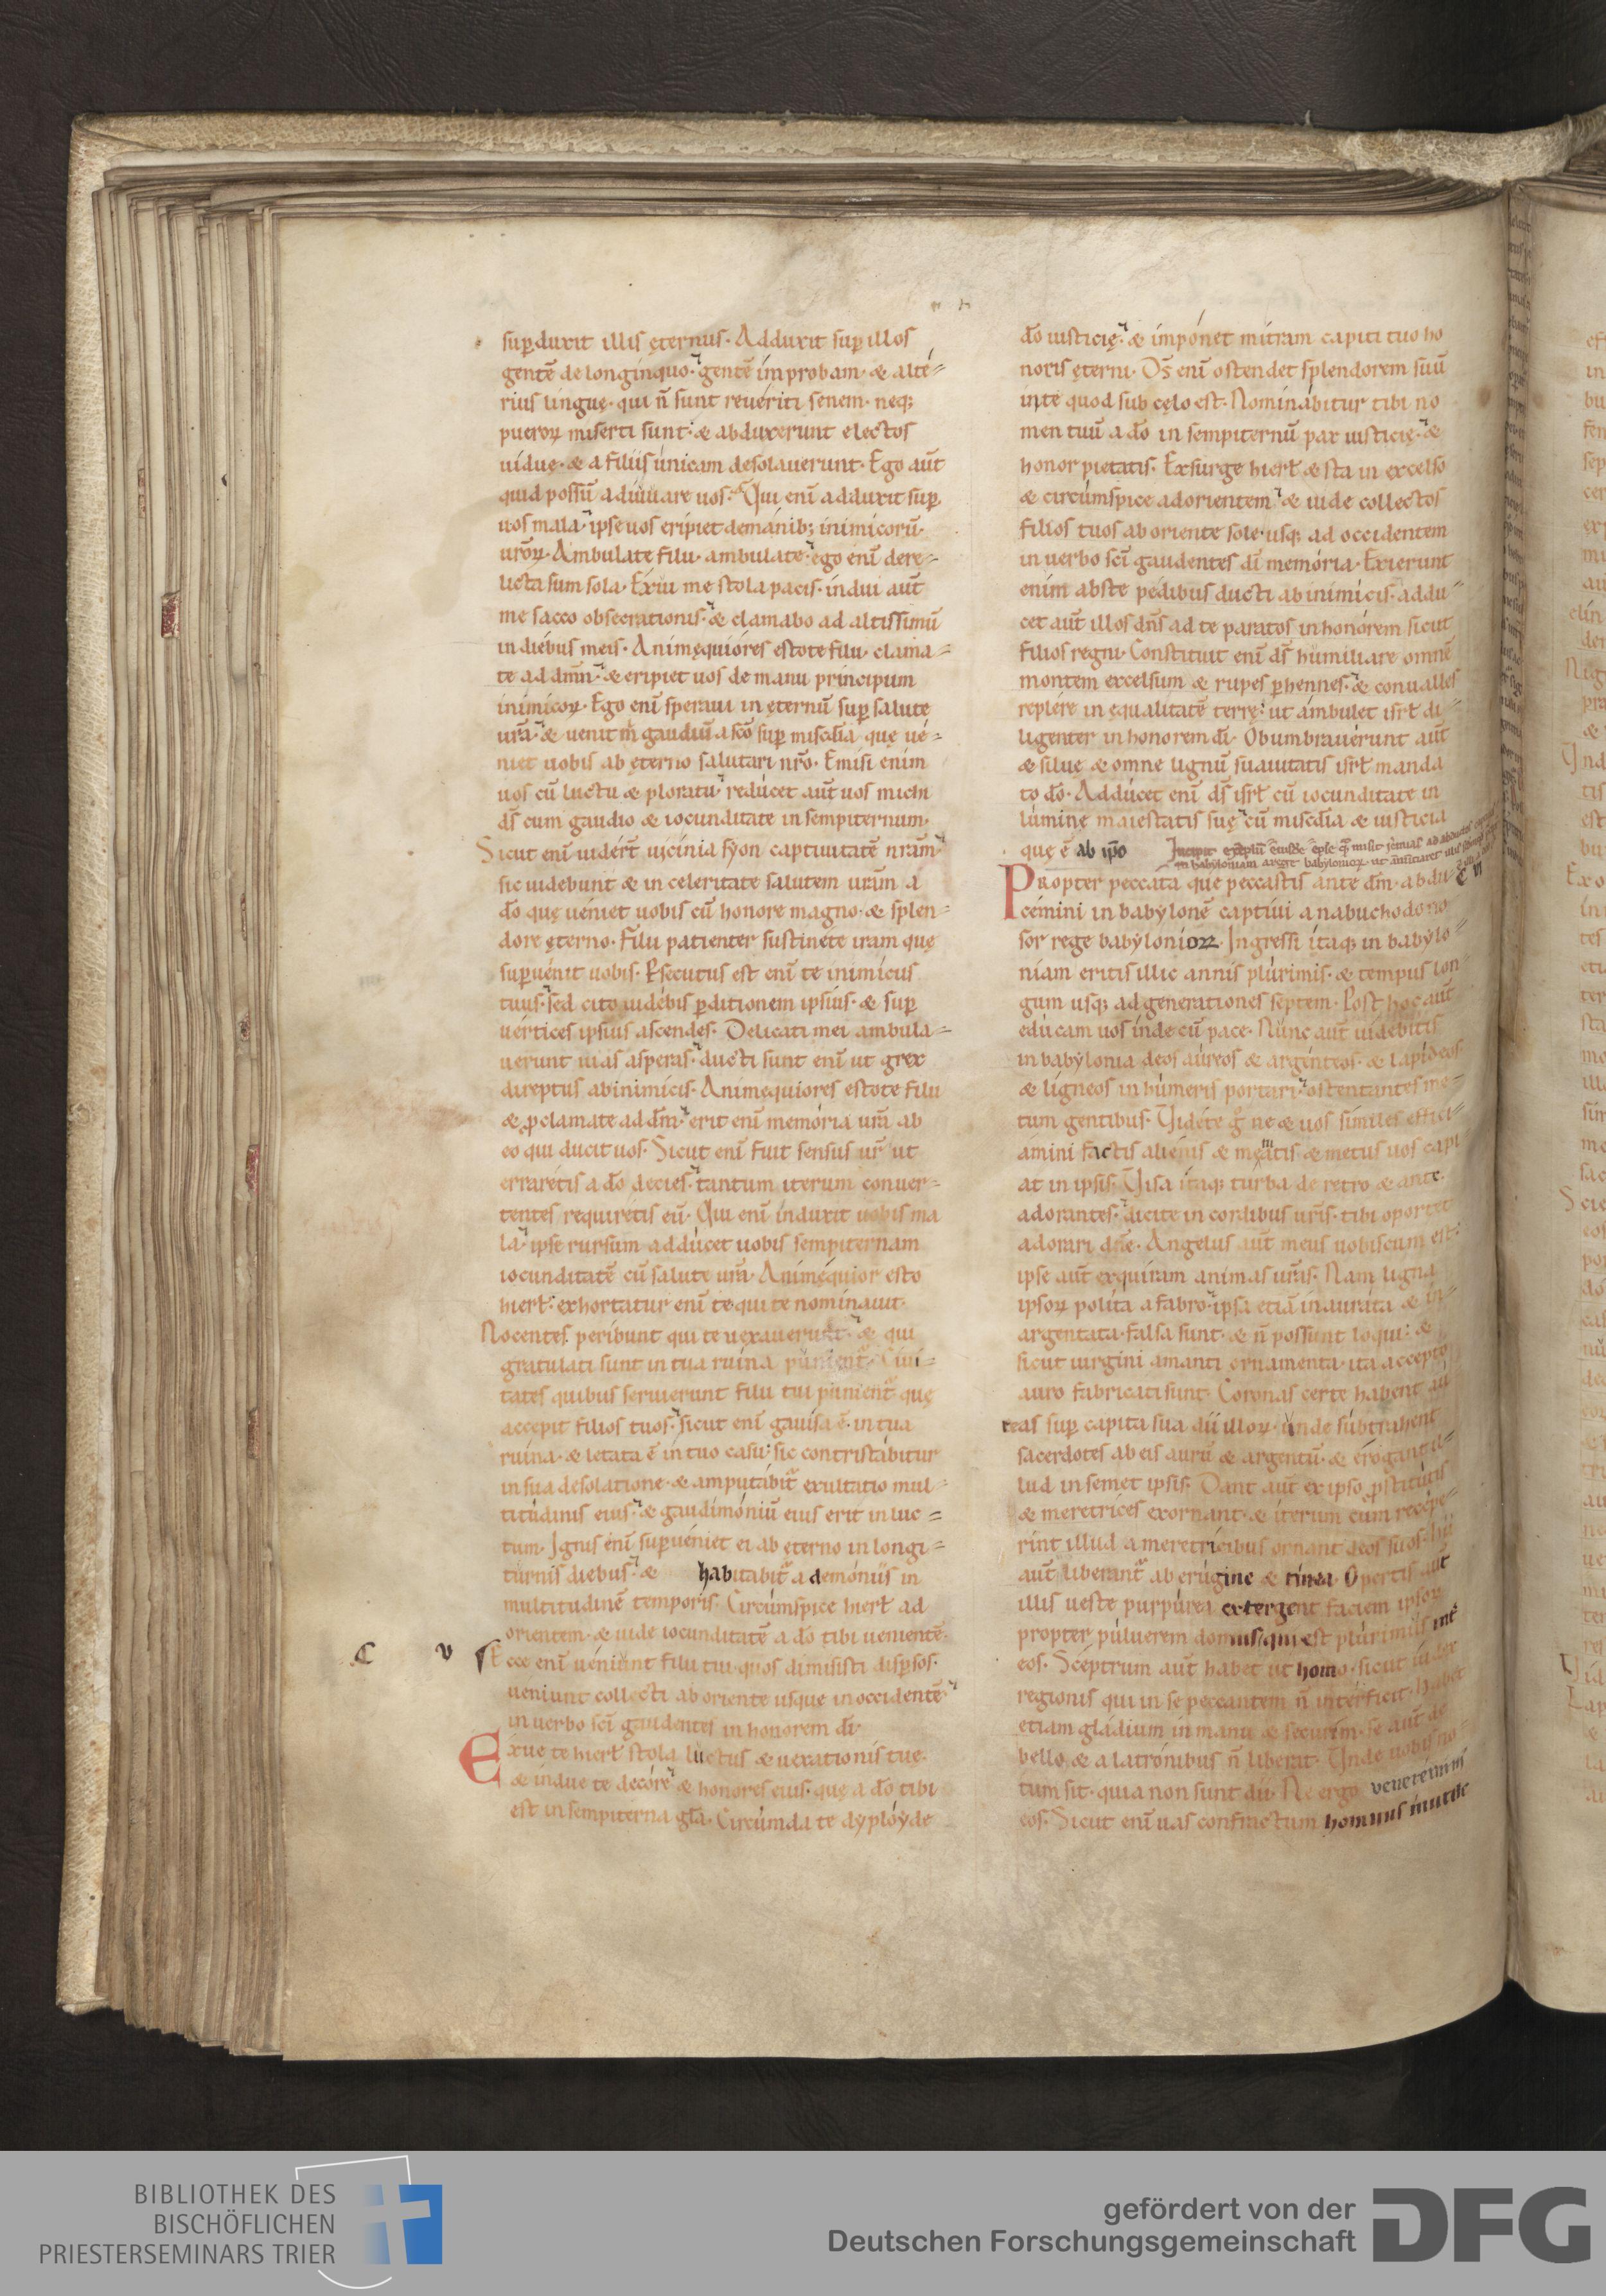 sup̱duxit illis ęternus· Adduxit sup̱ illos
gentē de longinquo· gentē improbam· & alte-
rius linguę· qui ñ sunt reueriti senem· neq;
pueroꝝ miserti sunt· & abduxerunt electos
uiduę· & a filiis unicam desolauerunt· Ego aut̄
quid possū adiuuare uos· Qui enī adduxit sup̱
uos mala· ipse uos eripiet de manib; inimicorū·
uroꝝ· Ambulate filii· ambulate· ego enī dere-
licta sum sola· Exui me stola pacis· indui aut̄
me sacco obsecrationis· & clamabo ad altissimū
in diebus meis· Animęquiores estote filii· clama-
te ad dmm̄· & eripiet uos de manu principum
inimicoꝝ· Ego enī speraui in ęternū sup̱ salute
urā· & uenit m̄ gaudiū a sc̄o sup̱ misc̄dia quę ue-
niet uobis ab ęterno salutari nrō· Emisi enim
uos cū luctu & ploratu· reducet aut̄ uos michi
ds̄ cum gaudio & iocunditate in sempiternum·
Sicut enī uidert̄ uicinia syon captiuitatē nrām·
sic uidebunt & in celeritate salutem urām a
dō quę ueniet uobis cū honore magno· & splen-
dore ęterno· Filii patienter sustinete iram quę
sup̱uenit uobis· Psecutus est enī te inimicus
tuus· sed cito uidebis p̱ditionem ipsius· & sup̱
uertices ipsius ascendes· Delicati mei ambula-
uerunt uias asperas· ducti sunt enī ut grex
direptus ab inimicis· Animequiores estote filii
& p̱clamate ad dm̄· erit enī memoria urā ab
eo qui ducit uos· Sicut enī fuit sensus ur̄ ut
erraretis a dō decies· tantum iterum conuer-
tentes requiretis eū· Qui enī induxit uobis ma
la· ipse rursum adducet uobis sempiternam
iocunditatē cū salute urā· Animęquior esto
hierł· exhortatur enī te qui te nominauit·
Nocentes peribunt qui te uexauerunt· & qui
gratulati sunt in tua ruina punient· Ciui-
tates quibus seruierunt filii tui punient̄· quę
accepit filios tuos· sicut enī gauisa ē· in tua
ruina· & letata ē in tuo casu· sic contristabitur
in sua desolatione· & amputabit̄ exultatio mul-
titudinis eius· & gaudimoniū eius erit in luc-
tum· Ignis enī sup̱ueniet ei ab ęterno in longi-
turnis diebus· & habitabit̄ a demoniis in
multitudinē temporis· Circumspice hierł ad
orientem· & uide iocunditatē a dō tibi uenientē·
C v Ecce enī ueniunt filii tui· quos dimisisti disp̱sos·
ueniunt collecti ab oriente usque in occidentē·
in uerbo sc̄i gaudentes in honorem dī·
Exue te hierł stola luctus & uexationis tuę·
& indue te decore· & honores eius· quę a dō tibi
est in sempiterna glā· Circumda te dyployde
dō iusticię· & imponet mitram capiti tuo ho
noris ęterni· Ds̄ enī ostendet splendorem suū
in te quod sub cęlo est· Nominabitur tibi no
men tuū a dō in sempiternū pax iusticię· &
honor pietatis· Exsurge hierł & sta in excelso
& circumspice ad orientem· & uide collectos
filios tuos ab oriente sole· usq; ad occidentem
in uerbo sc̄i gaudentes dī memoria· Exierunt
enim abs te pedibus ducti ab inimicis· addu-
cet aut̄ illos dn̄s ad te paratos in honorem sicut
filios regni· Constituit enī ds̄ humiliare omnē
montem excelsum & rupes p̱hennes· & conualles
replere in ęqualitatē terrę· ut ambulet isrł di-
ligenter in honorem dī· Obumbrauerunt aut̄
& siluę & omne lignū suauitatis isrł manda
to dō· Adducet enī ds̄ isrł cū iocunditate in
lumine maiestatis suę· cū misc̄dia & iusticia
quę ē ab ip̄o Incipit
C VI
Propter peccata que peccastis ante dm̄· abdu-
cemini in babylonē captiui a nabuchodono
sor rege babylonioꝝ· Ingressi itaq; in babylo-
niam eritis illic annis plurimis· & tempus lon-
gum usq; ad generationes septem· Post hoc aut̄
educam uos inde cū pace· Nunc aut̄ uidebitis
in babylonia deos aureos & argenteos· & lapideos
& ligneos in humeris portari· ostentantes me-
tum gentibus· Uidete g̊ ne & uos similes effici-
amini factis alienis & metuatis· & metus uos capi
at in ipsis· Uisa itaq; turba de retro & ante
adorantes· dicite in cordibus uris̄· tibi oportet
adorari dn̄e· Angelus aut̄ meus uobiscum est·
ipse aut̄ exquiram animas urās· Nam ligna
ipsoꝝ polita a fabro· ipsa etiā inaurata & in-
argentata· falsa sunt· & ñ possunt loqui· &
sicut uirgini amanti ornamenta· ita accepto
auro fabricati sunt· Coronas certe habent au
reas sup̱ capita sua dii illoꝝ· unde subtrahent
sacerdotes ab eis aurū & argentū· & erogant il-
lud in semet ipsis· Dant aut̄ ex ipso p̱stitutis
& meretrices exornant· & iterum cum recepe-
rint illud a meretricibus ornant deos suos· hii
aut̄ liberant̄ ab erugine & tinea· Opertis aut̄
illis ueste purpurea extergent faciem ipsoꝝ
propter puluerem domus· qui est plurimus int̄
eos· Sceptrum aut̄ habet ut homo· sicut iudex
regionis qui in se peccantem ñ interficit· habet
etiam gladium in manu & securim· se aut̄ de
bello & a latronibus ñ liberat· Unde uobis no-
tum sit· quia non sunt dii· Ne ergo uenereimini
eos· Sicut enī uas confractum hominis inutile
BIBLIOTHEK DES
BISCHÖFLICHEN
PRIESTERSEMINARS TRIER
gefördert von der
Deutschen Forschungsgemeinschaft
DFG